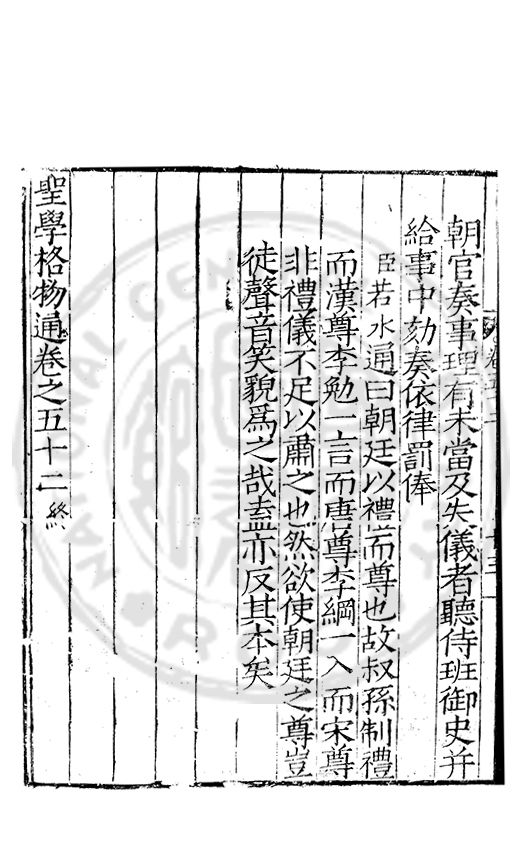 朝官奏事理有未當及失儀者聽侍班御史并
給事中劾奏依律罰俸
臣若水通曰朝廷以禮而尊也故叔孫制禮
而漢尊李勉一言而唐尊李綱一入而宋尊
非禮儀不足以肅之也然欲使朝廷之尊豈
徒聲音笑貌爲之哉盍亦反其本矣
聖學格物通卷之五十二 終